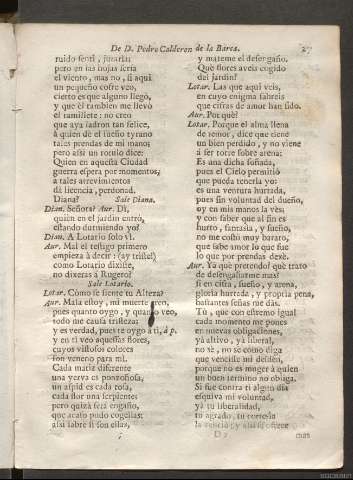 De D. Pedro Calderon de la Barca. 27
ruido senti, juraria:
pero en las hojas seria
el viento, mas no, si aqui
un pequeño cofre veo,
cierto es que alguno llegò,
y que èl tambien me llevò
el ramillete: no creo
que aya ladron tan felice,
à quien dè el sueño tyrano
tales prendas de mi mano;
pero assi un rotulo dice:
Quien en aquesta Ciudad
guerra espera por momentos,
à tales atrevimientos
dà licencia, perdonad.
Diana? Sale Diana.
Dian. Señora? Aur. Dì,
quièn en el jardin entrò,
estando durmiendo yo?
Dian. A Lotario solo vì.
Aur. Mal el testigo primero
empieza à decir: (ay triste!)
como Lotario dixiste,
no dixeras à Rugero?
Sale Lotario.
Lotar. Como se siente tu Alteza?
Aur. Mala estoy, mi muerte creo,
pues quanto oygo, y quanto veo,
todo me causa tristeza:
y es verdad, pues te oygo à ti, à p.
y en ti veo aquessas flores,
cuyos vistosos colores
son veneno para mi.
Cada matiz diferente
una yerva es ponzoñosa,
un aspid es cada rosa,
cada flor una serpiente:
pero quizà serà engaño,
que acaso pudo cogellas:
assi sabrè si son ellas,
y mateme el desengaño.
Què flores aveis cogido
del jardin?
Lotar. Las que aqui veis,
en cuyo enigma sabreis
que cifras de amor han sido.
Aur. Por què?
Lotar. Porque el alma llena
de temor, dice que tiene
un bien perdido, y no viene
à ser torre sobre arena:
Es una dicha soñada,
pues el Cielo permitiò
que pueda tenerla yo:
es una ventura hurtada,
pues sin voluntad del dueño,
oy en mis manos la vès;
y con saber que al fin es
hurto, fantasia, y sueño,
no me costò muy barato,
que sabe amor lo que fue
lo que por prendas dexè.
Aur. Yà què pretendo? què trato
de desengañarme mas?
si en cifra, sueño, y arena,
gloria hurtada, y propria pena,
bastantes señas me dàs.
Tù, que con estremo igual
cada momento me pones
en nuevas obligaciones,
yà altivo, yà liberal,
no sè, no sè como diga
que venciste mi desdèn,
porque no es muger à quien
un buen termino no obliga.
Si fue contra ti algun dia
esquiva mi voluntad,
yà tu liberalidad,
tu agrado, tu cortesia
la venciò; y assi se ofrece
D 2 mas